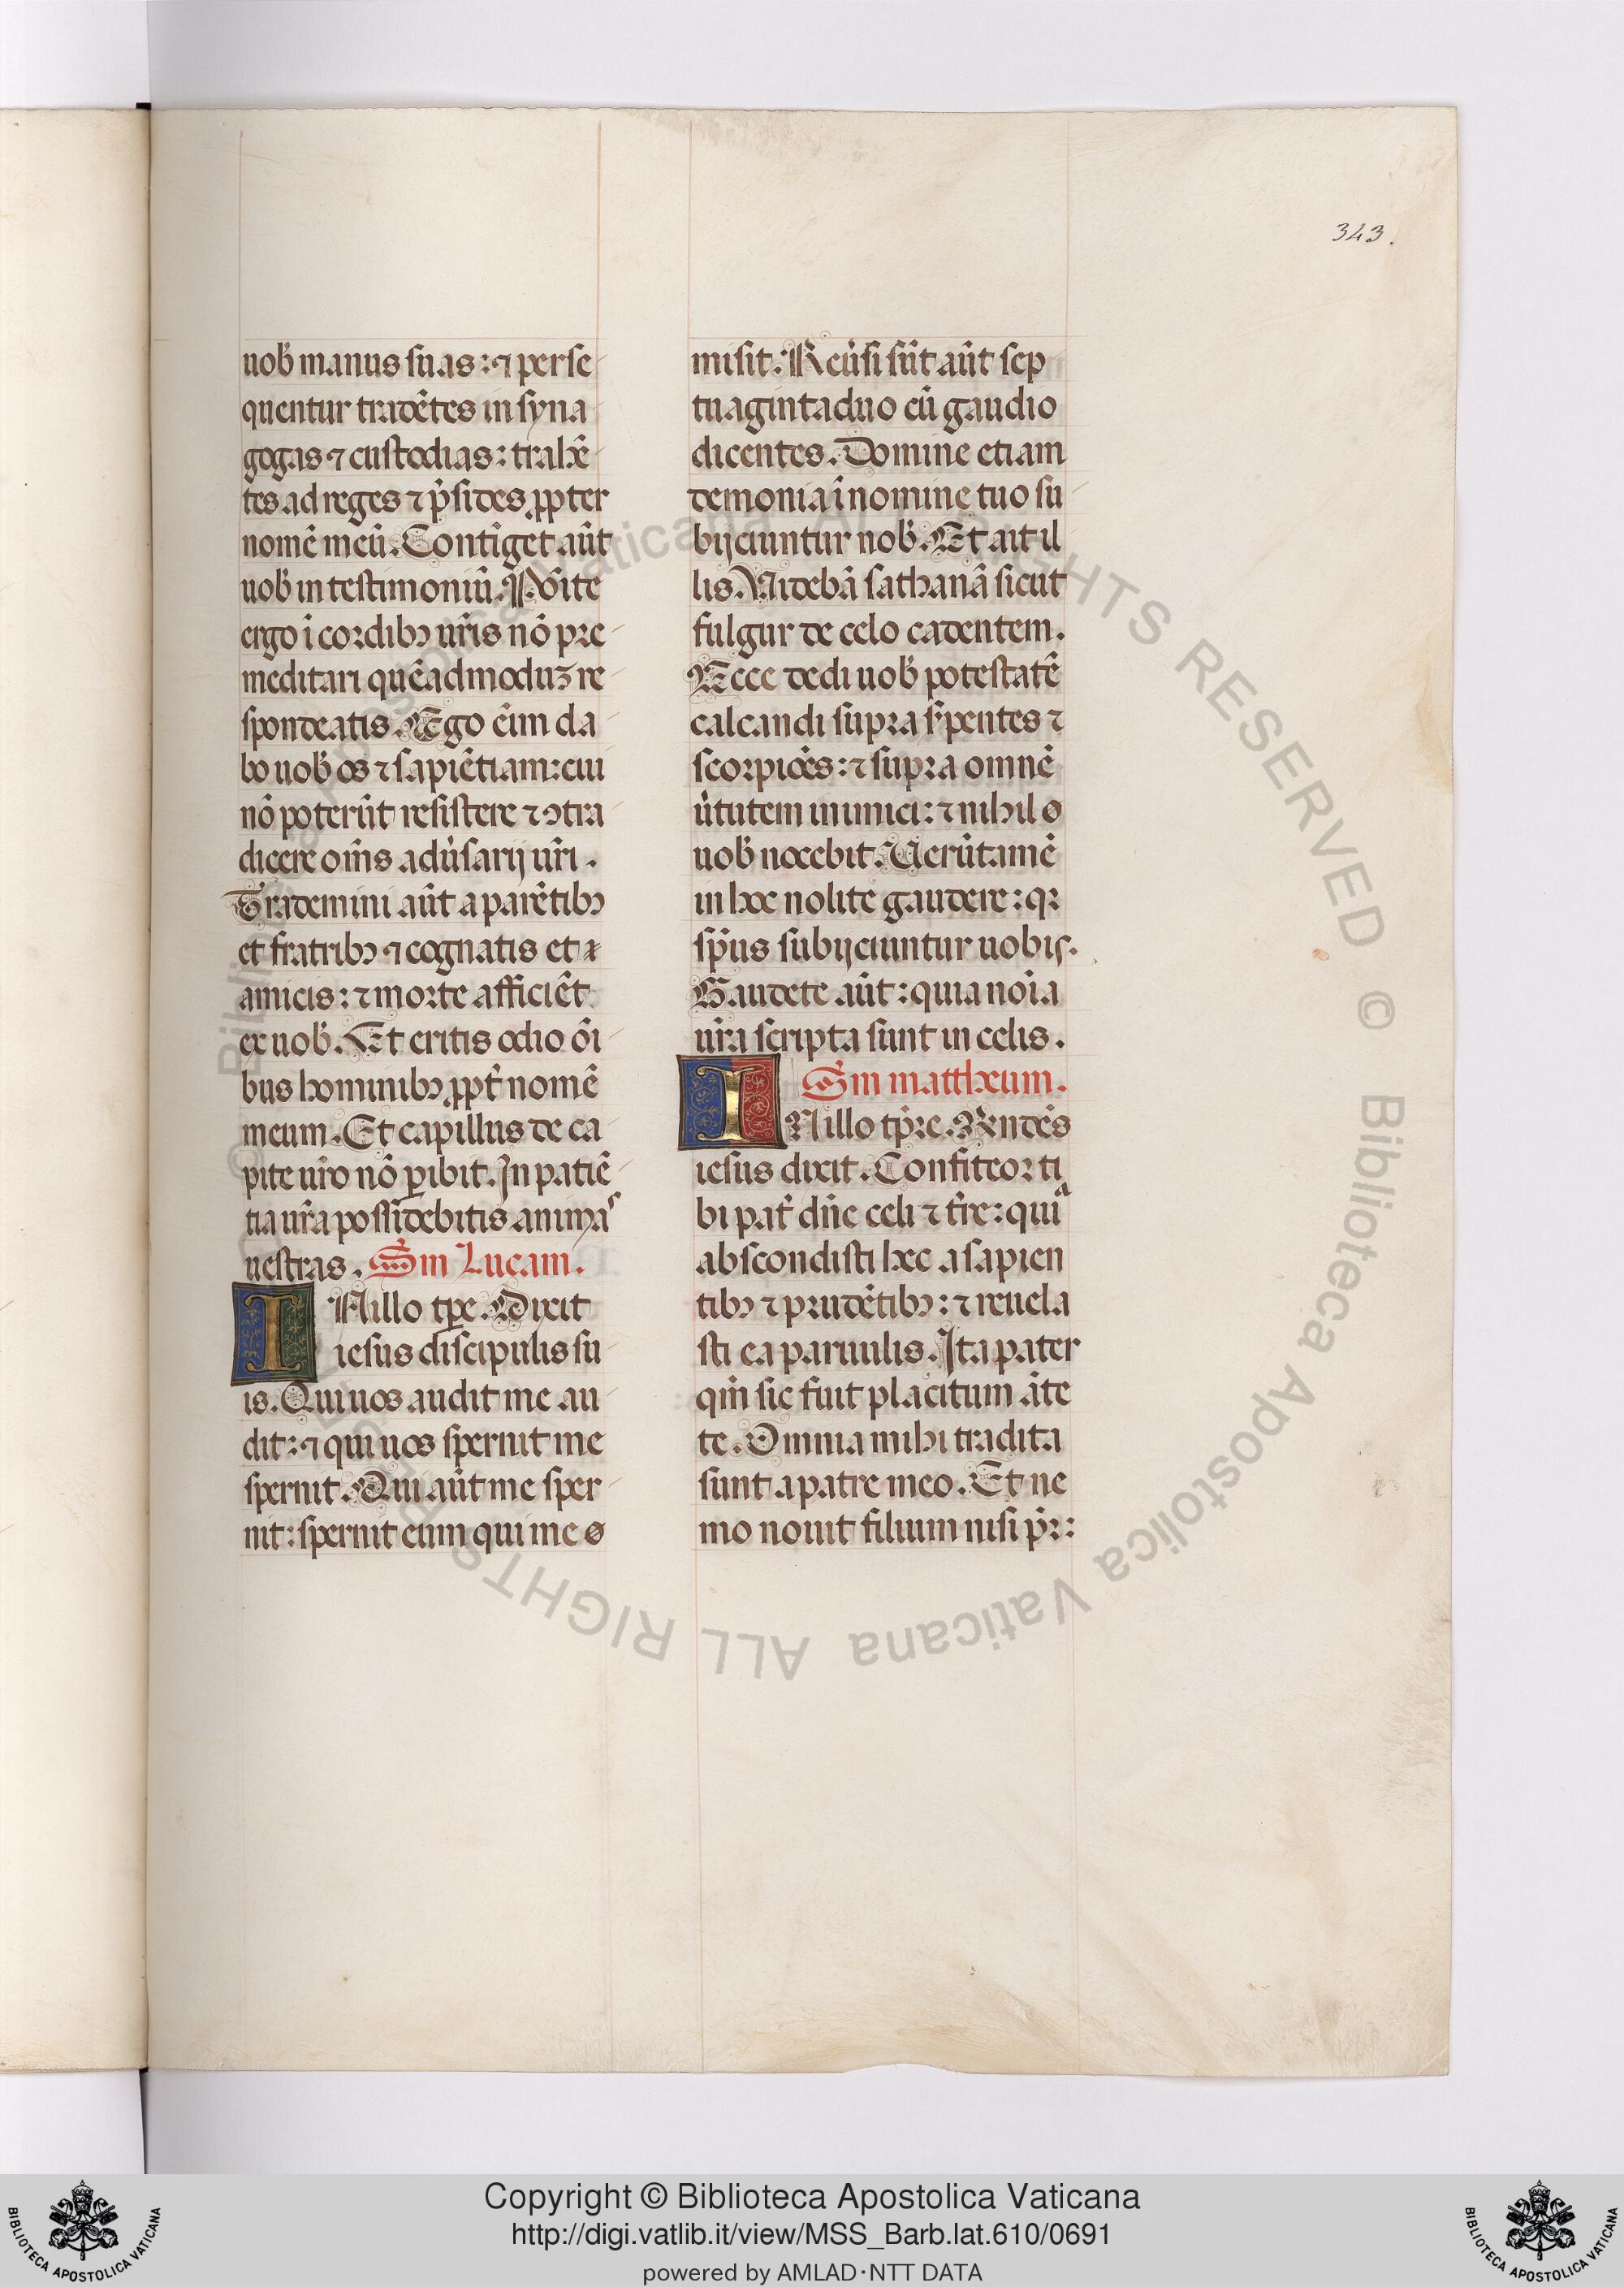 343.
uob̾ manus suas: ⁊ perse
quentur tradētes in syna
gogas ⁊ custodias: trahē
tes ad reges ⁊ p̾sides ꝓpter
nomē meū. Contīget aūt
uob̾ in testimoniū. Pōite
ergo ī cordibꝫ ur̄is nō pre
meditari quēadmoduꝫ re
spondeatis. Ego ēim da
bo uob̾ os ⁊ sapiētiam: cui
nō poterūt resistere ⁊ ↄtra
dicere om̄s adu̾sarij ur̄i.
Trademini aūt a parētibꝫ
et fratribꝫ ⁊ cognatis et
amicis: ⁊ morte afficiēt
ex uob̾. Et eritis odio ōi
bus hominibꝫ ꝓpt̾ nomē
meum. Et capillus de ca
pite ur̄o nō ꝑibit. In patiē
tia ur̄a possidebitis animas
uestras. Sm Lucam.
IN illo tꝑe. Dixit
iesus discipulis su
is. Qui uos audit me au
dit: ⁊ qui uos spernit me
spernit. Qui aūt me sper
nit: spernit eum qui me
misit. Reu̾si sūt aūt sep
tuaginta duo cū gaudio
dicentes. Domine etiam
demonia ī nomine tuo su
bijciuntur nob̾. Et ait il
lis. Videbā sathanā sicut
fulgur de celo cadentem.
Ecce dedi uob̾ potestatē
calcandi supra s̾pentes ⁊
scorpiōes: ⁊ supra omnē
u̾tutem inimici: ⁊ nihil
uob̾ nocebit. Uerūtamē
in hoc nolite gaudere: qꝛ
sp̄us subijciuntur uobis.
Gaudete aūt: quia noīa
ur̄a scripta sunt in celis.
Sm mattheum.
IN illo tp̄re. Rn̄dēs
iesus dixit. Confiteor ti
bi pat̾ dn̄e celi ⁊ t̾re: quia
abscondisti hec a sapien
tibꝫ ⁊ prudētibꝫ: ⁊ reuela
sti ea paruulis. Ita pater
qm̄ sic fuit placitum āte
te. Omnia mihi tradita
sunt a patre meo. Et ne
mo nouit filium nisi p̄r:
Copyright © Biblioteca Apostolica Vaticana
http://digi.vatlib.it/view/MSS_Barb.lat.610/0691
powered by AMLAD·NTT DATA
BIBLIOTECA APOSTOLICA VATICANA
BIBLIOTECA APOSTOLICA VATICANA
© Biblioteca Apostolica Vaticana ALL RIGHTS RESERVED
© Biblioteca Apostolica Vaticana ALL RIGHTS RESERVED